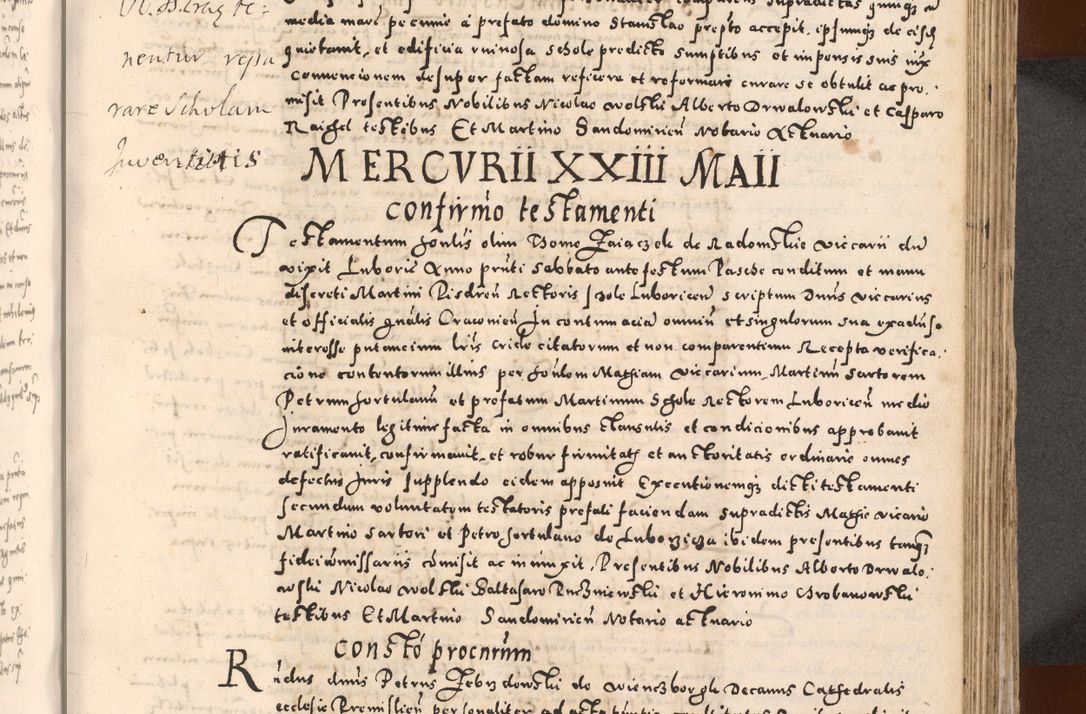 nentur repa
rare Scholam
Juventutis
media marc pecunie a prefato domino Stanislao prepto accepit, ipsumq de eisdem
quietavit, et edificia ruinosa schole predicte sumptibus et impensis suis iux
Convencionem desuper factam reficere et reformare curare se obtulit ac pro
misit Presentibus Nobilibus Nicolao Wolski Alberto Drwalowski et Casparo
Raichel testibus Et Martino Sandomirien Notario Actuario
MERCVRII XXIII MAII
Confirmo testamenti
Testamentum honlis olim Dome Zaiaczek de Radomskie viccarii du
vixit Luboric Anno pnti Sabbato ante festum Pasche conditum et manu
discreti Martini Pisdren Rectoris schole Luboricen scriptum Dnus viccarius
et officialis gnalis Cracovien In contumaciam omniu et singulorum sua
interesse putancium lris cride citatorum et non comparentium Recepta verifica
cione contentorum illius per honlem Mathiam viccarium, Martinu Sartorem
Petrum hortulanu et prefatum Martinum Schole Rectorem Luboricen medio
Juramento legitime facta in omnibus clausulis et condicionibus approbavit
ratificavit, confirmavit, et robur firmitatis et auctoritatis ordinarie omnes
defectus Juris supplendo eidem apposuit Executionemq dicti testamenti
secundum voluntatem testatoris prefati faciendam supradictis Mathie vicario
Martino Sartori et Petro hortulano de Luborzicza ibidem presentibus tanq
fideicomissariis comisit ac iniunxit, Presentibus Nobilibus Alberto Drwalo
wski Nicolao Wolski Baltasaro Ruczniewski et Hieronimo Chrobanowski
testibus Et Martino Sandomirien Notario actuario
Consto procurum
Rndus dnus Petrus Zebrzdowski de Wienczborgk Decanus Cathedralis
ecclesie Premislien personaliter